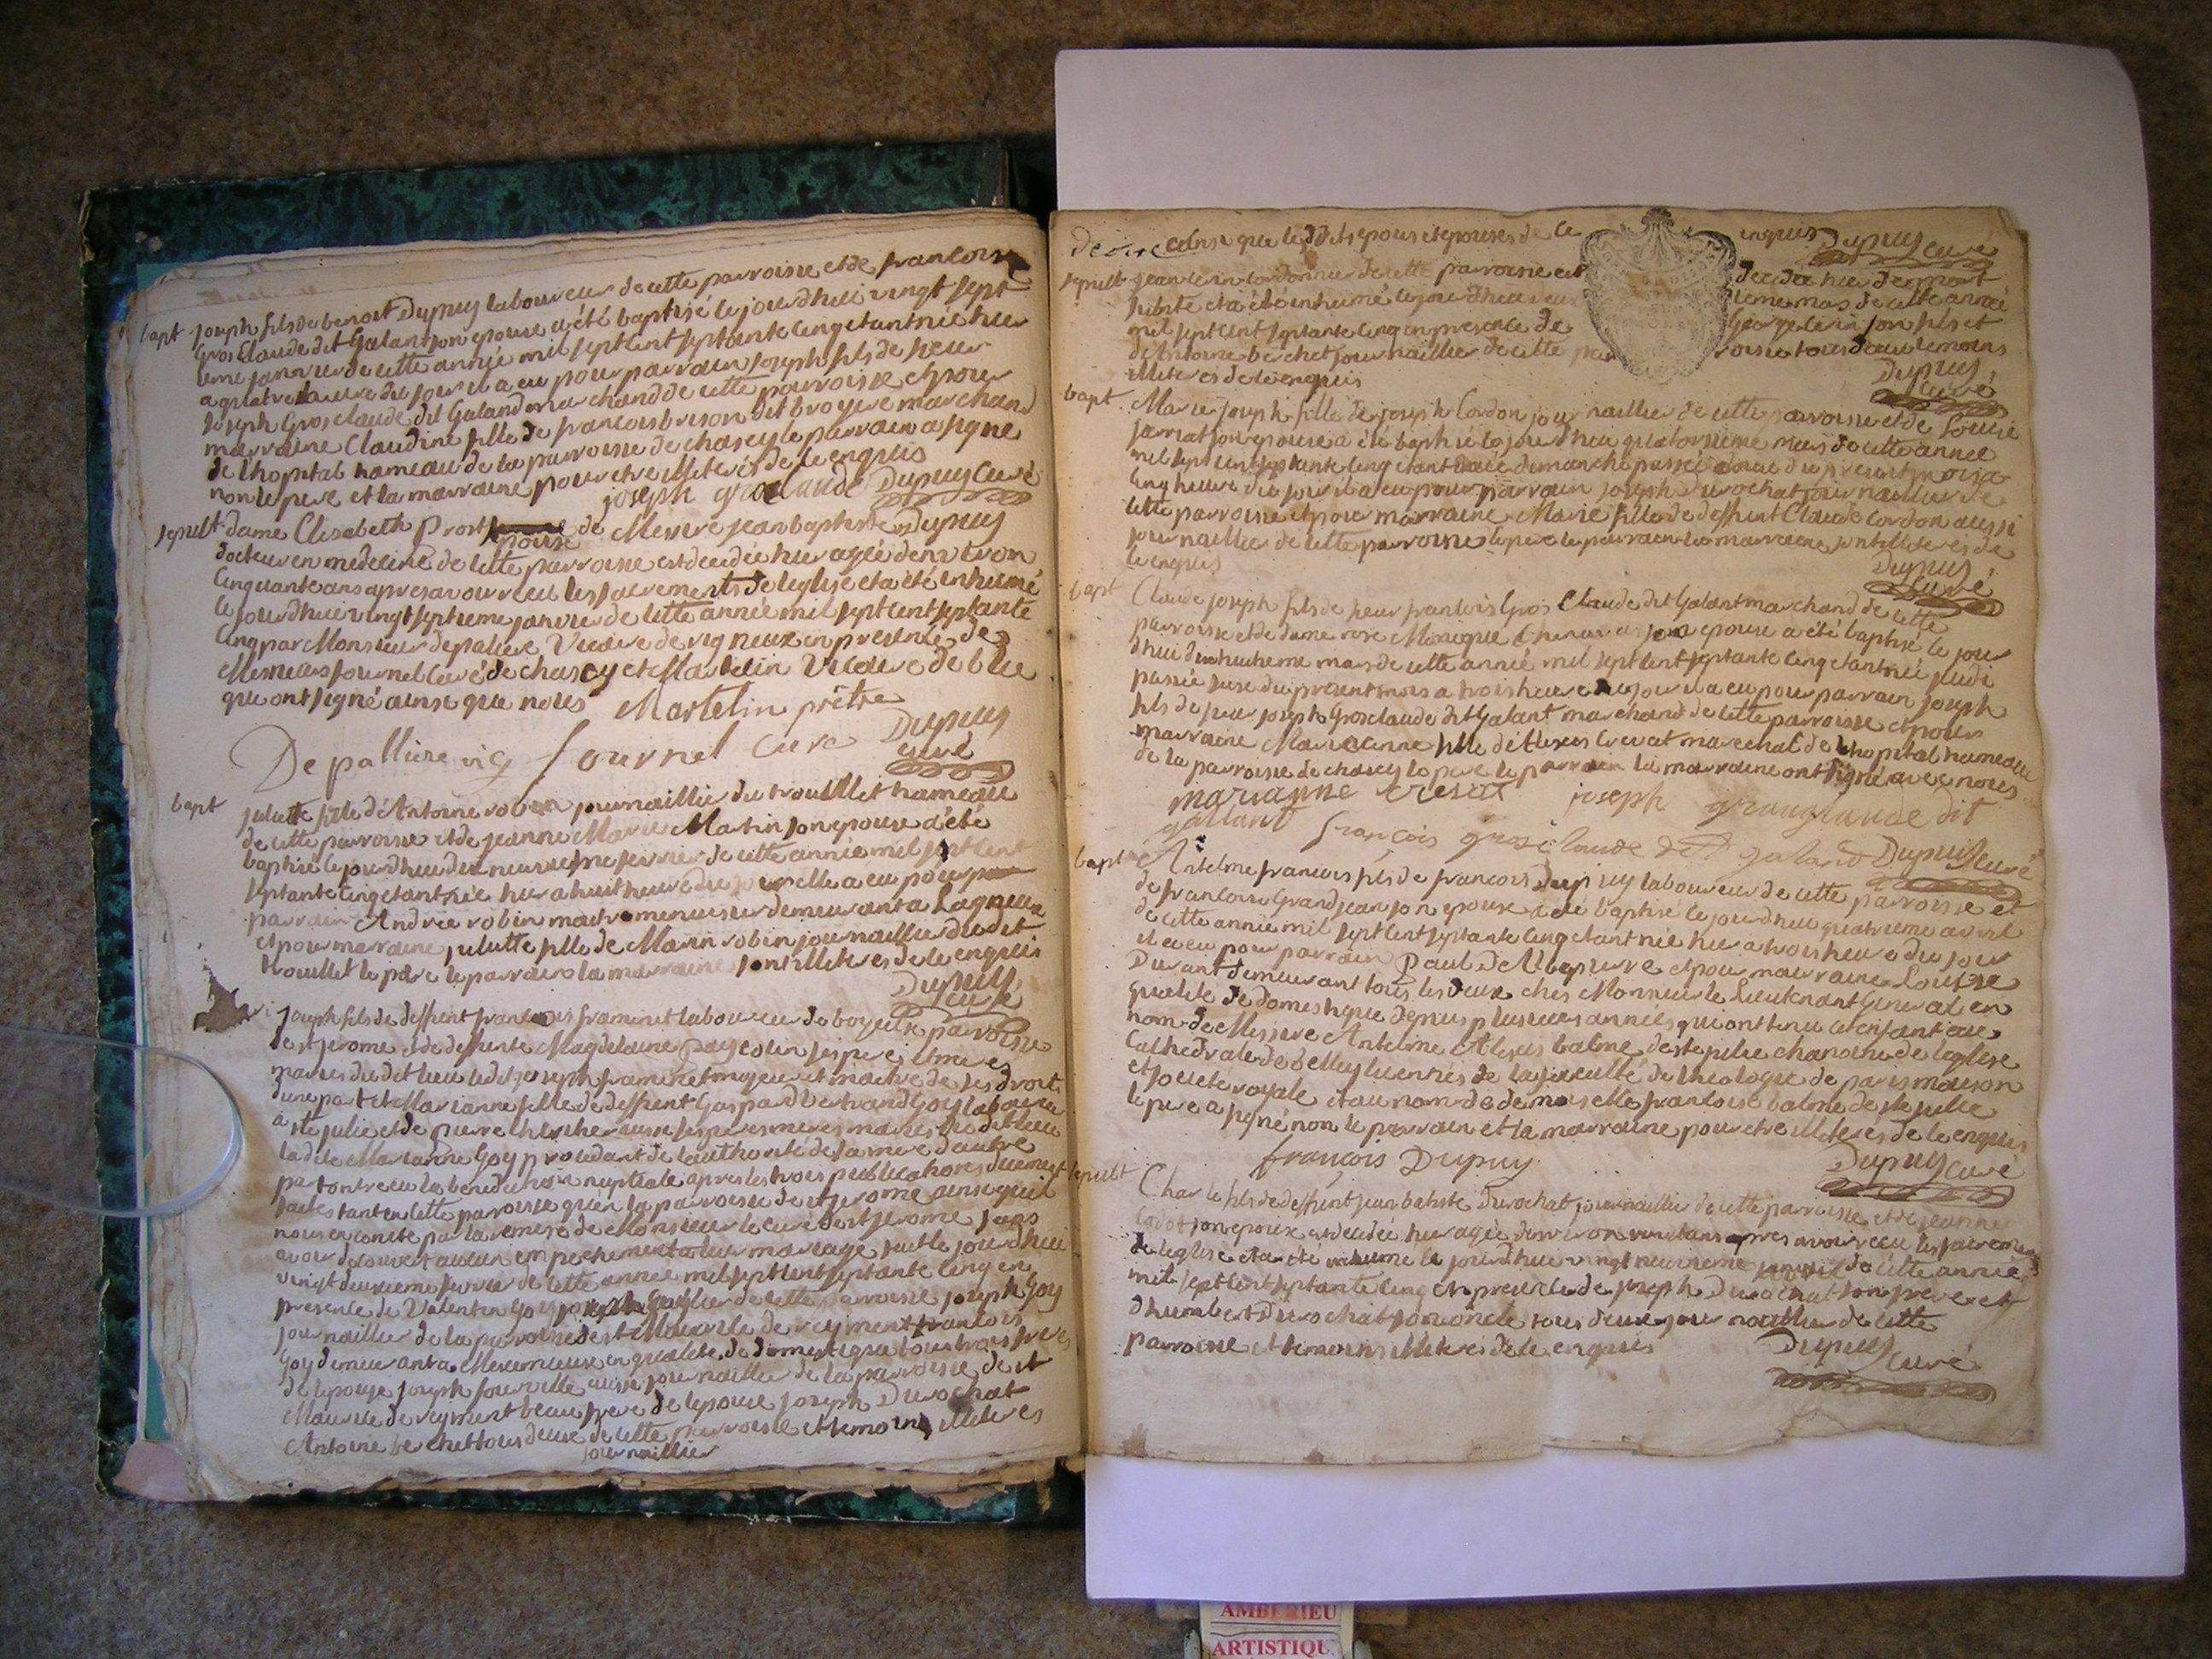 bapt joseph fils de benoit Dupuy laboureur de cette parroisse et de francoise
Gros Claude dit Galant son epouse a été baptisé le jourdhui vingt sept
ieme janvier de cette année mil sept cent septante cinq etant née hier
a quatre heure du jour il a eu pour parrain joseph fils de sieur
joseph Gros claude dit Galand marchand de cette parroisse et pour
marraine Claudine fille de francois brison dit broyere marchand
de lhopital hameau de la parroisse de chasey le parrain a signe
non le pere et la marraine pour etre illiterés de ce enquis
joseph grosclaude Dupuy curé
sepult dame Elisabeth Prost epouse de Messire jean baptiste Dupuy
docteur en medecine de cette parroisse est decedée hier agée denviron
cinquante ans apres avoir recu les sacrements de leglise et a été inhumé
le jourdhui vingt septieme janvier de cette année mil sept cent septante
cinq par Monsieur depaliere Vicaire de vigneux en presence de
Messieurs fournel Curé de chasey et Martelin Vicaire de blie
qui ont signé ainsi que nous Martelin prêtre
Depalliere vic fournel curé Dupuy
curé
bapt juliette fille d'Antoine robin journaillier du trouillet hameau
de cette parroisse et de jeanne Marie Martin son epouse a été
baptisée le jourdhui dix neuvieme fevrier de cette année mil sept cent
septante cinq etant née hier a huit heure du jour elle a eu pour
parrain Andrée robin maitre menuisier demeurant a Lagneux
et pour marraine juliette fille de Marin robin journaillier dudit
trouillet le père le parrain la marraine sont illiteres de ce enquis
Dupuy
curé
joseph fils de deffent francois framinet laboureur de boyeux parroisse
de st jerome et de deffente Magdelaine paycolin ses pere et mere
mariés dudit lieu ledit joseph framinet majeur et maitre de ses droit
dune part et Marianne fille de deffent Gaspard bertrand Goy laboureur
a ste julie et de pierre chercher aussi ses peres meres mariés dudit lieu
ladite Marianne Goy procedant de lauthorité de sa mere dautre
part ont recu la benediction nuptiale apres les trois publications duement
faites tant en cette parroisse qu'en la parroisse de st jerome ainsi quil
nous en conste par la remise de Monsieur le curé de st jerome sans
avoir decouvert aucun empechement a leur mariage fait le jourdhui
vingt deuxieme fevrier de cette année mil sept cent septante cinq en
presence de Valentin Goy de cette parroisse joseph Goy
journaillier de la parroisse de st Maurice de reyment francois
Goy demeurant a Meximieux en qualité de domestique tous trois freres
de lepouse joseph fourville aussi journaillier de la parroisse de st
Maurice de reyment beau frere de lepouse joseph Durochat
Antoine berchet tous deux de cette parroisse et temoins illiteres
journaillier
de ce ainsi que lesdits epoux et epouses de ce enquis Dupuy curé
sepult jean levin cordonnier de cette parroisse est decedée hier de mort
subite et a été inhumé le jourdhui deux ieme mars de cette année
mil sept cent septante cinq en presence de George levin son fils et
d'Antoine berchet journaillier de cette par roisse tous deux temoins
illiteres de ce enquis Dupuy
curé
bapt Marie joseph fille de joseph Cordon journaillier de cette parroisse et de Louise
jarriat son epouse a été baptisée le jourdhui quatorsieme mars de cette année
mil sept cent septante cinq etant née dimanche passée douse du present mois a
cinq heure du jour il a eu pour parrain joseph Durochat journaillier de
cette parroisse et pour marraine Marie fille de deffent Claude Cordon aussi
journaillier de cette parroisse le pere le parrain la marraine sont illiteres de
ce enquis Dupuy
curé
bapt Claude joseph fils de sieur francois Gros Claude dit Galant marchand de cette
parroisse et de dame rose Monique son epouse a été baptisé le jour
dhui dixhuitieme mars de cette année mil sept cent septante cinq etant née jeudi
passée seise du present mois a trois heure du jour il a eu pour parrain joseph
fils de sieur joseph Grosclaude dit Galant marchand de cette parroisse et pour
marraine Marieanne fille d'Alexis Crevat marechal de lhopital hameau
de la parroisse de chasey le pere le parrain la marraine ont signé avec nous
marianne crevat joseph grosglaude dit
gallant françois grosclaude dit galand Dupuy curé
bapt Antelme francois fils de francois Dupuy laboureur de cette parroisse et
de francoise Grand jean son epouse a été baptisé le jourdhui quatrieme avril
de cette année mil sept cent septante cinq etant née hier a trois heure du jour
il a eu pour parrain Paul et pour marraine Louise
Durant demeurant tous les deux chés Monsieur le Lieutenant General en
qualité de domestique depuis plusieurs années qui ont tenu cet enfant au
nom de Messire Antelme Alexis balme de ste julie chanoine de leglise
Cathedrale de belley licentiés de la faculté de theologie de paris maison
et societé royale et au nom de demoiselle francoise balme de ste julie
le pere a signé non le parrain et la marraine pour etre illiteres de ce enquis
françois Dupuy Dupuy curé
sepult Charle fils de deffent jean batiste Durochat journaillier de cette parroisse et de jeanne
son epouse est decedée hier agée denviron vint ans apres avoir recu les sacrements
de leglise et a été inhumé le jourdhui vingt neuvieme avril de cette année
mil sept cent septante cinq en presence de joseph Durochat son frere et
dhumbert Durochat son oncle tous deux journaillier de cette
parroisse et temoins illiteres de ce enquis Dupuy
curé
AMBERIEU
ARTISTIQU